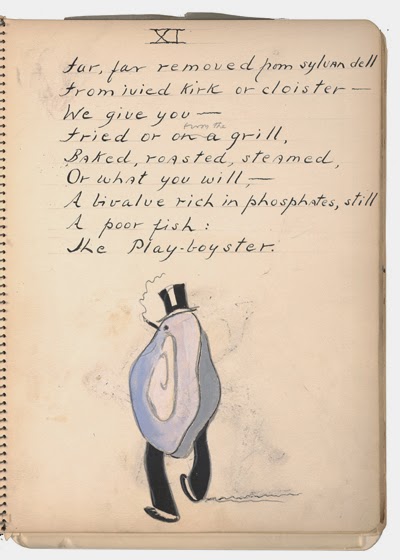 XI
Far, far removed from sylvan dell
From ivied kirk or cloister —
We give you —
from the
Fried or on a grill,
Baked, roasted, steamed,
Or what you will, —
A bivalve rich in phosphates, still
A poor fish :
The Play-boyster.